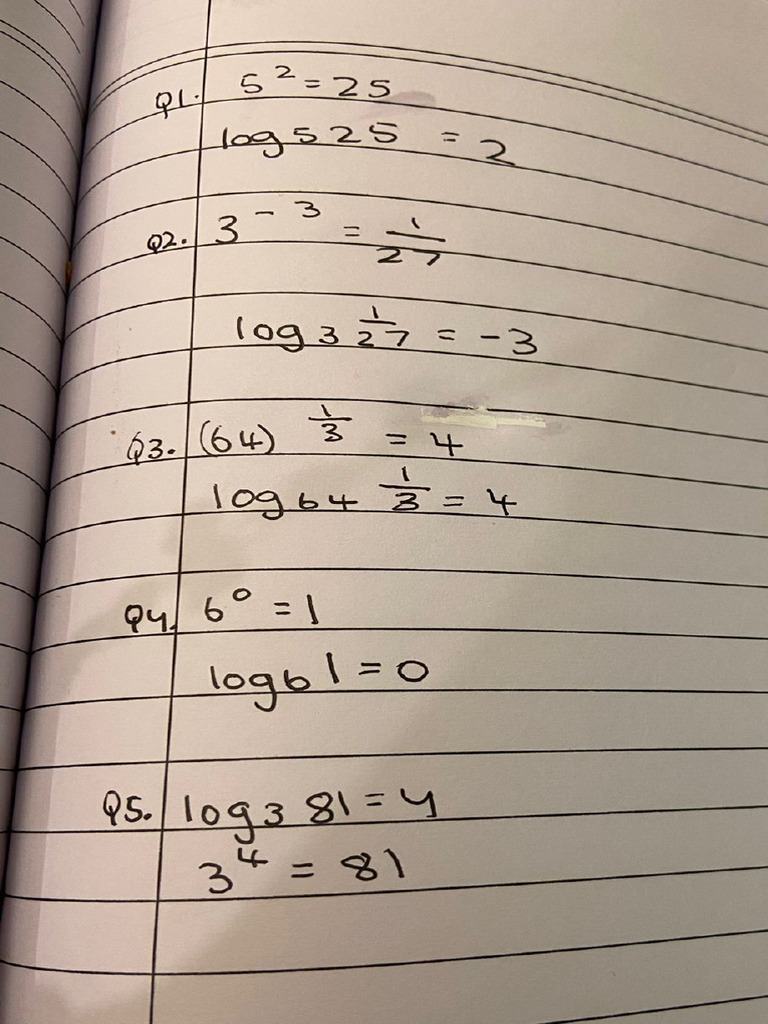 Q1. 5² = 25
log 5 25 = 2
Q2. 3⁻³ = 1/27
log 3 1/27 = -3
Q3. (64)^1/3 = 4
log 64 1/3 = 4
Q4. 6⁰ = 1
log 6 1 = 0
Q5. log 3 81 = 4
3⁴ = 81